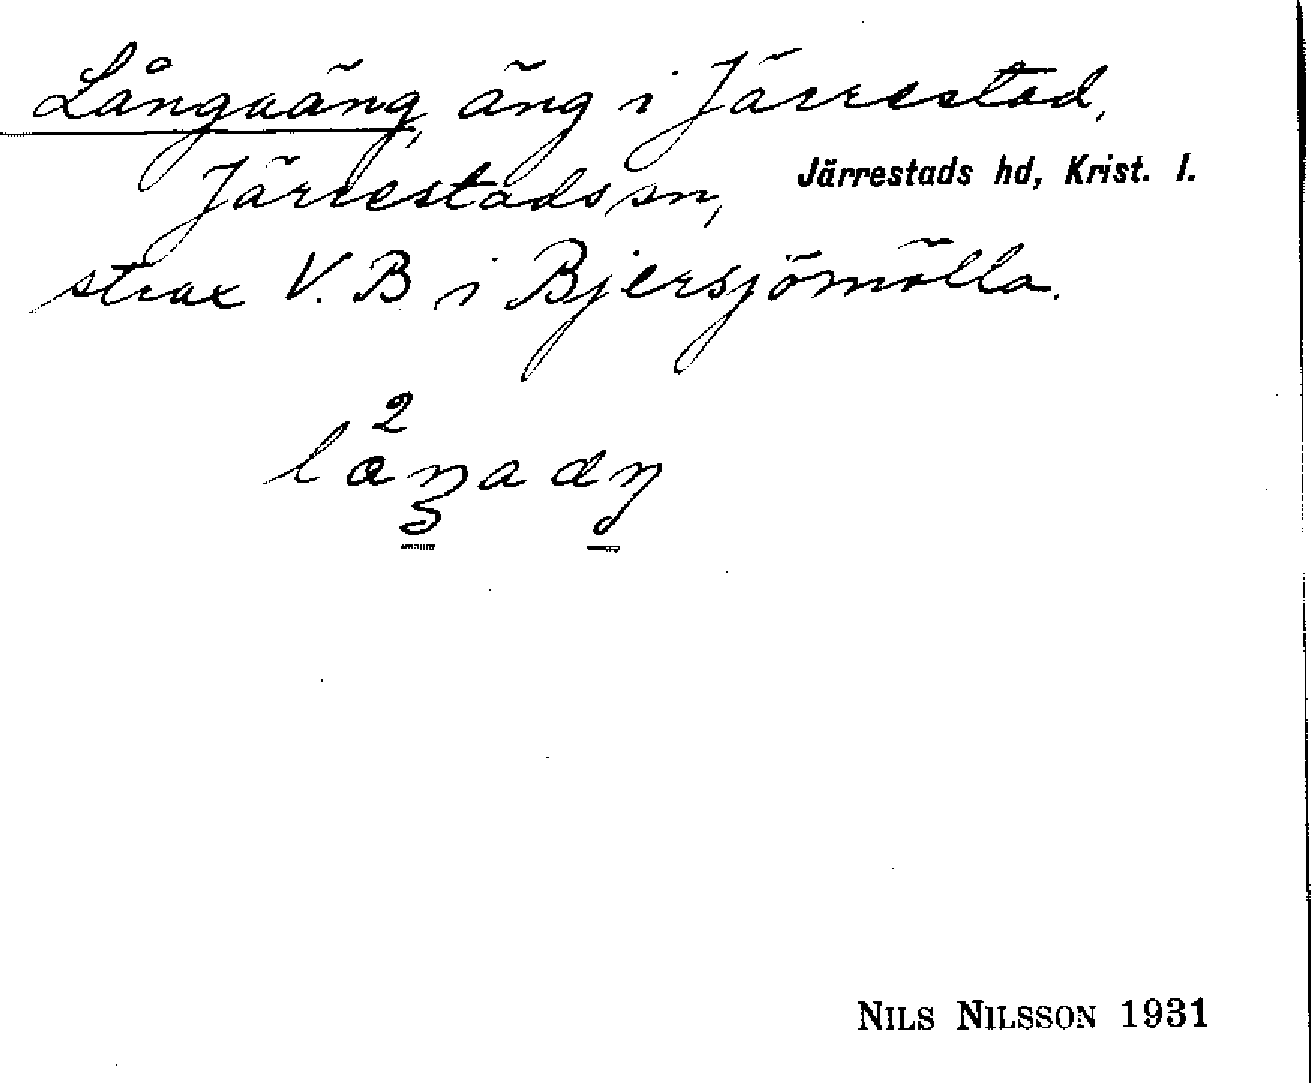 Långaäng, äng i Järrestad,
Järrestads sn, Järrestads hd, Krist. l.
strax V. B i Bjersjömölla.
NILS NILSSON 1931